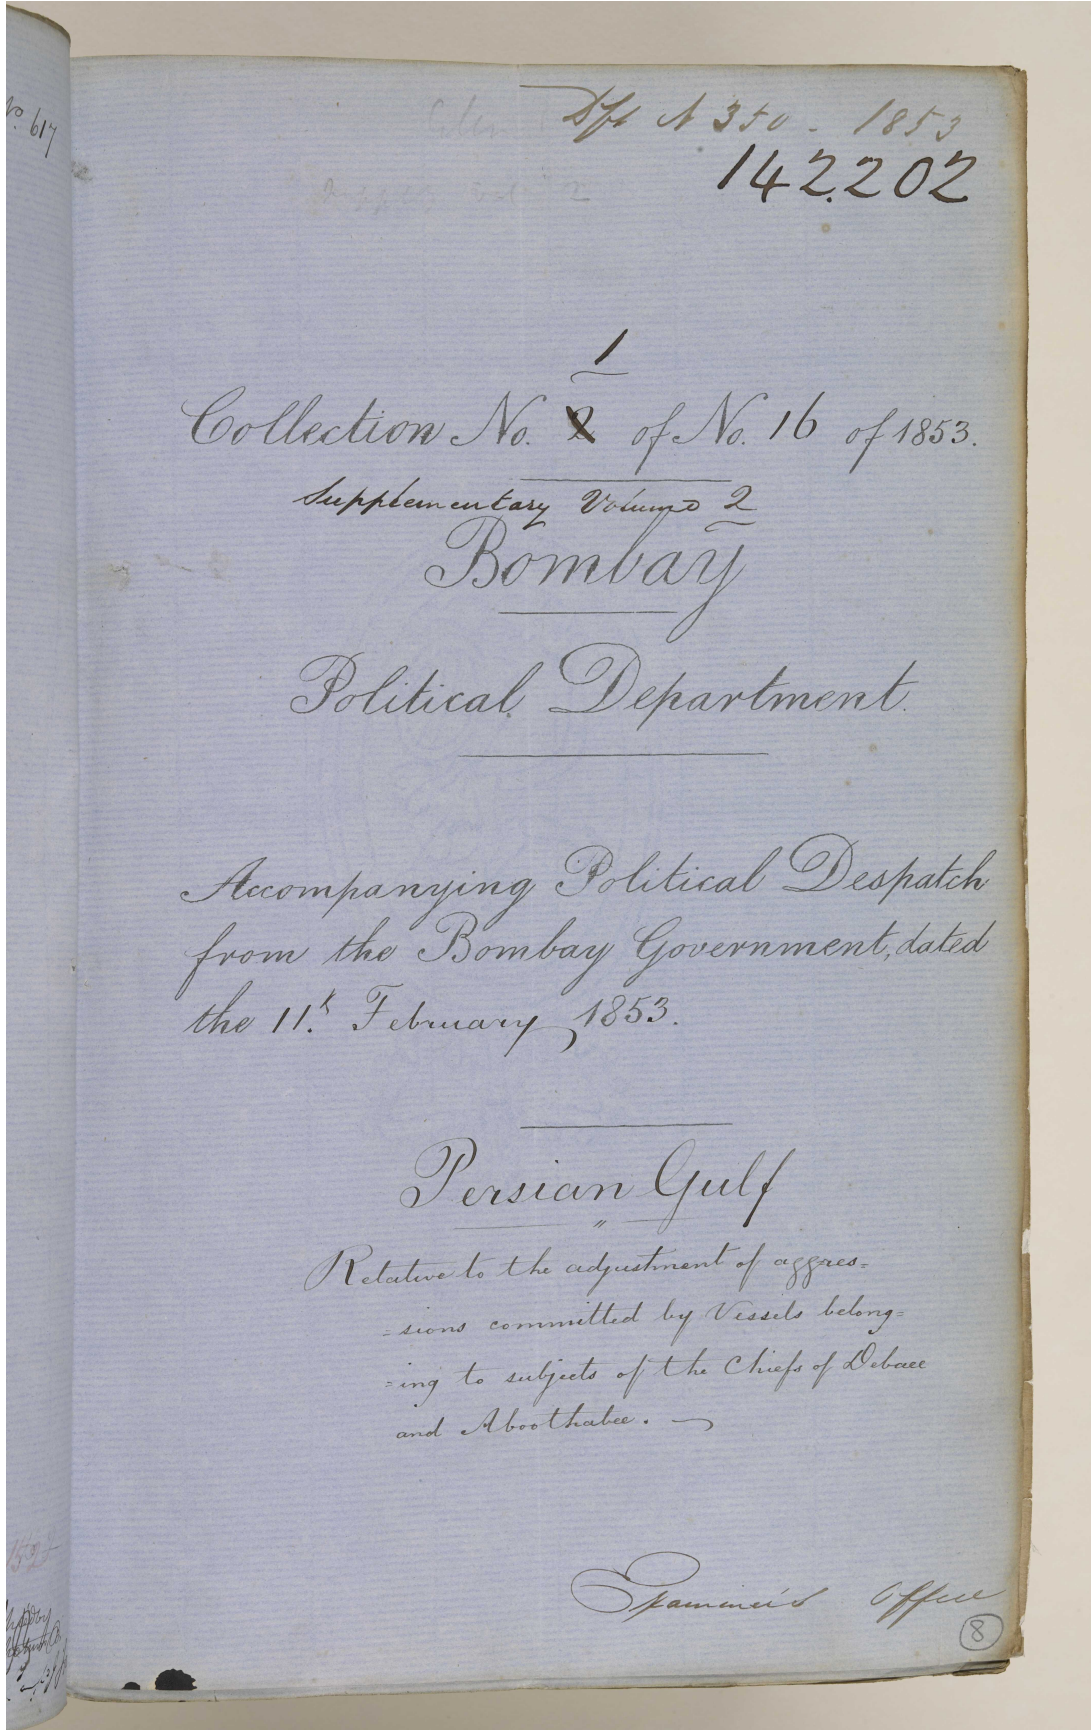 No. 617
Dft N 350 - 1853
142202
1
Collection No. 2 of No. 16 of 1853.
Supplementary Volume 2
Bombay
Political Department.
Accompanying Political Despatch
from the Bombay Government, dated
the 11th. February, 1853.
Persian Gulf
"
Relative to the adjustment of aggres=
=sions committed by Vessels belong=
=ing to subjects of the Chiefs of Debaee
and Aboothabee.
Examiner's Office
8